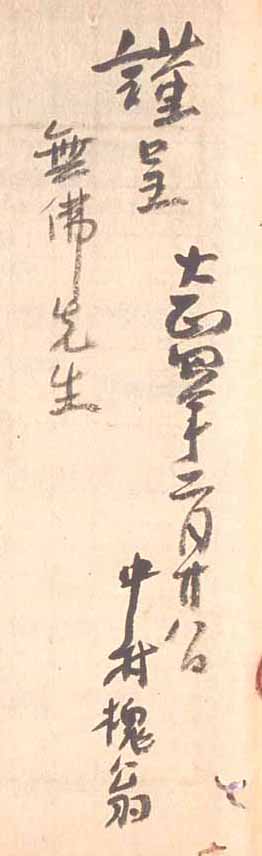 謹呈
大正四年二月廿八日
中村槐翁
無佛先生